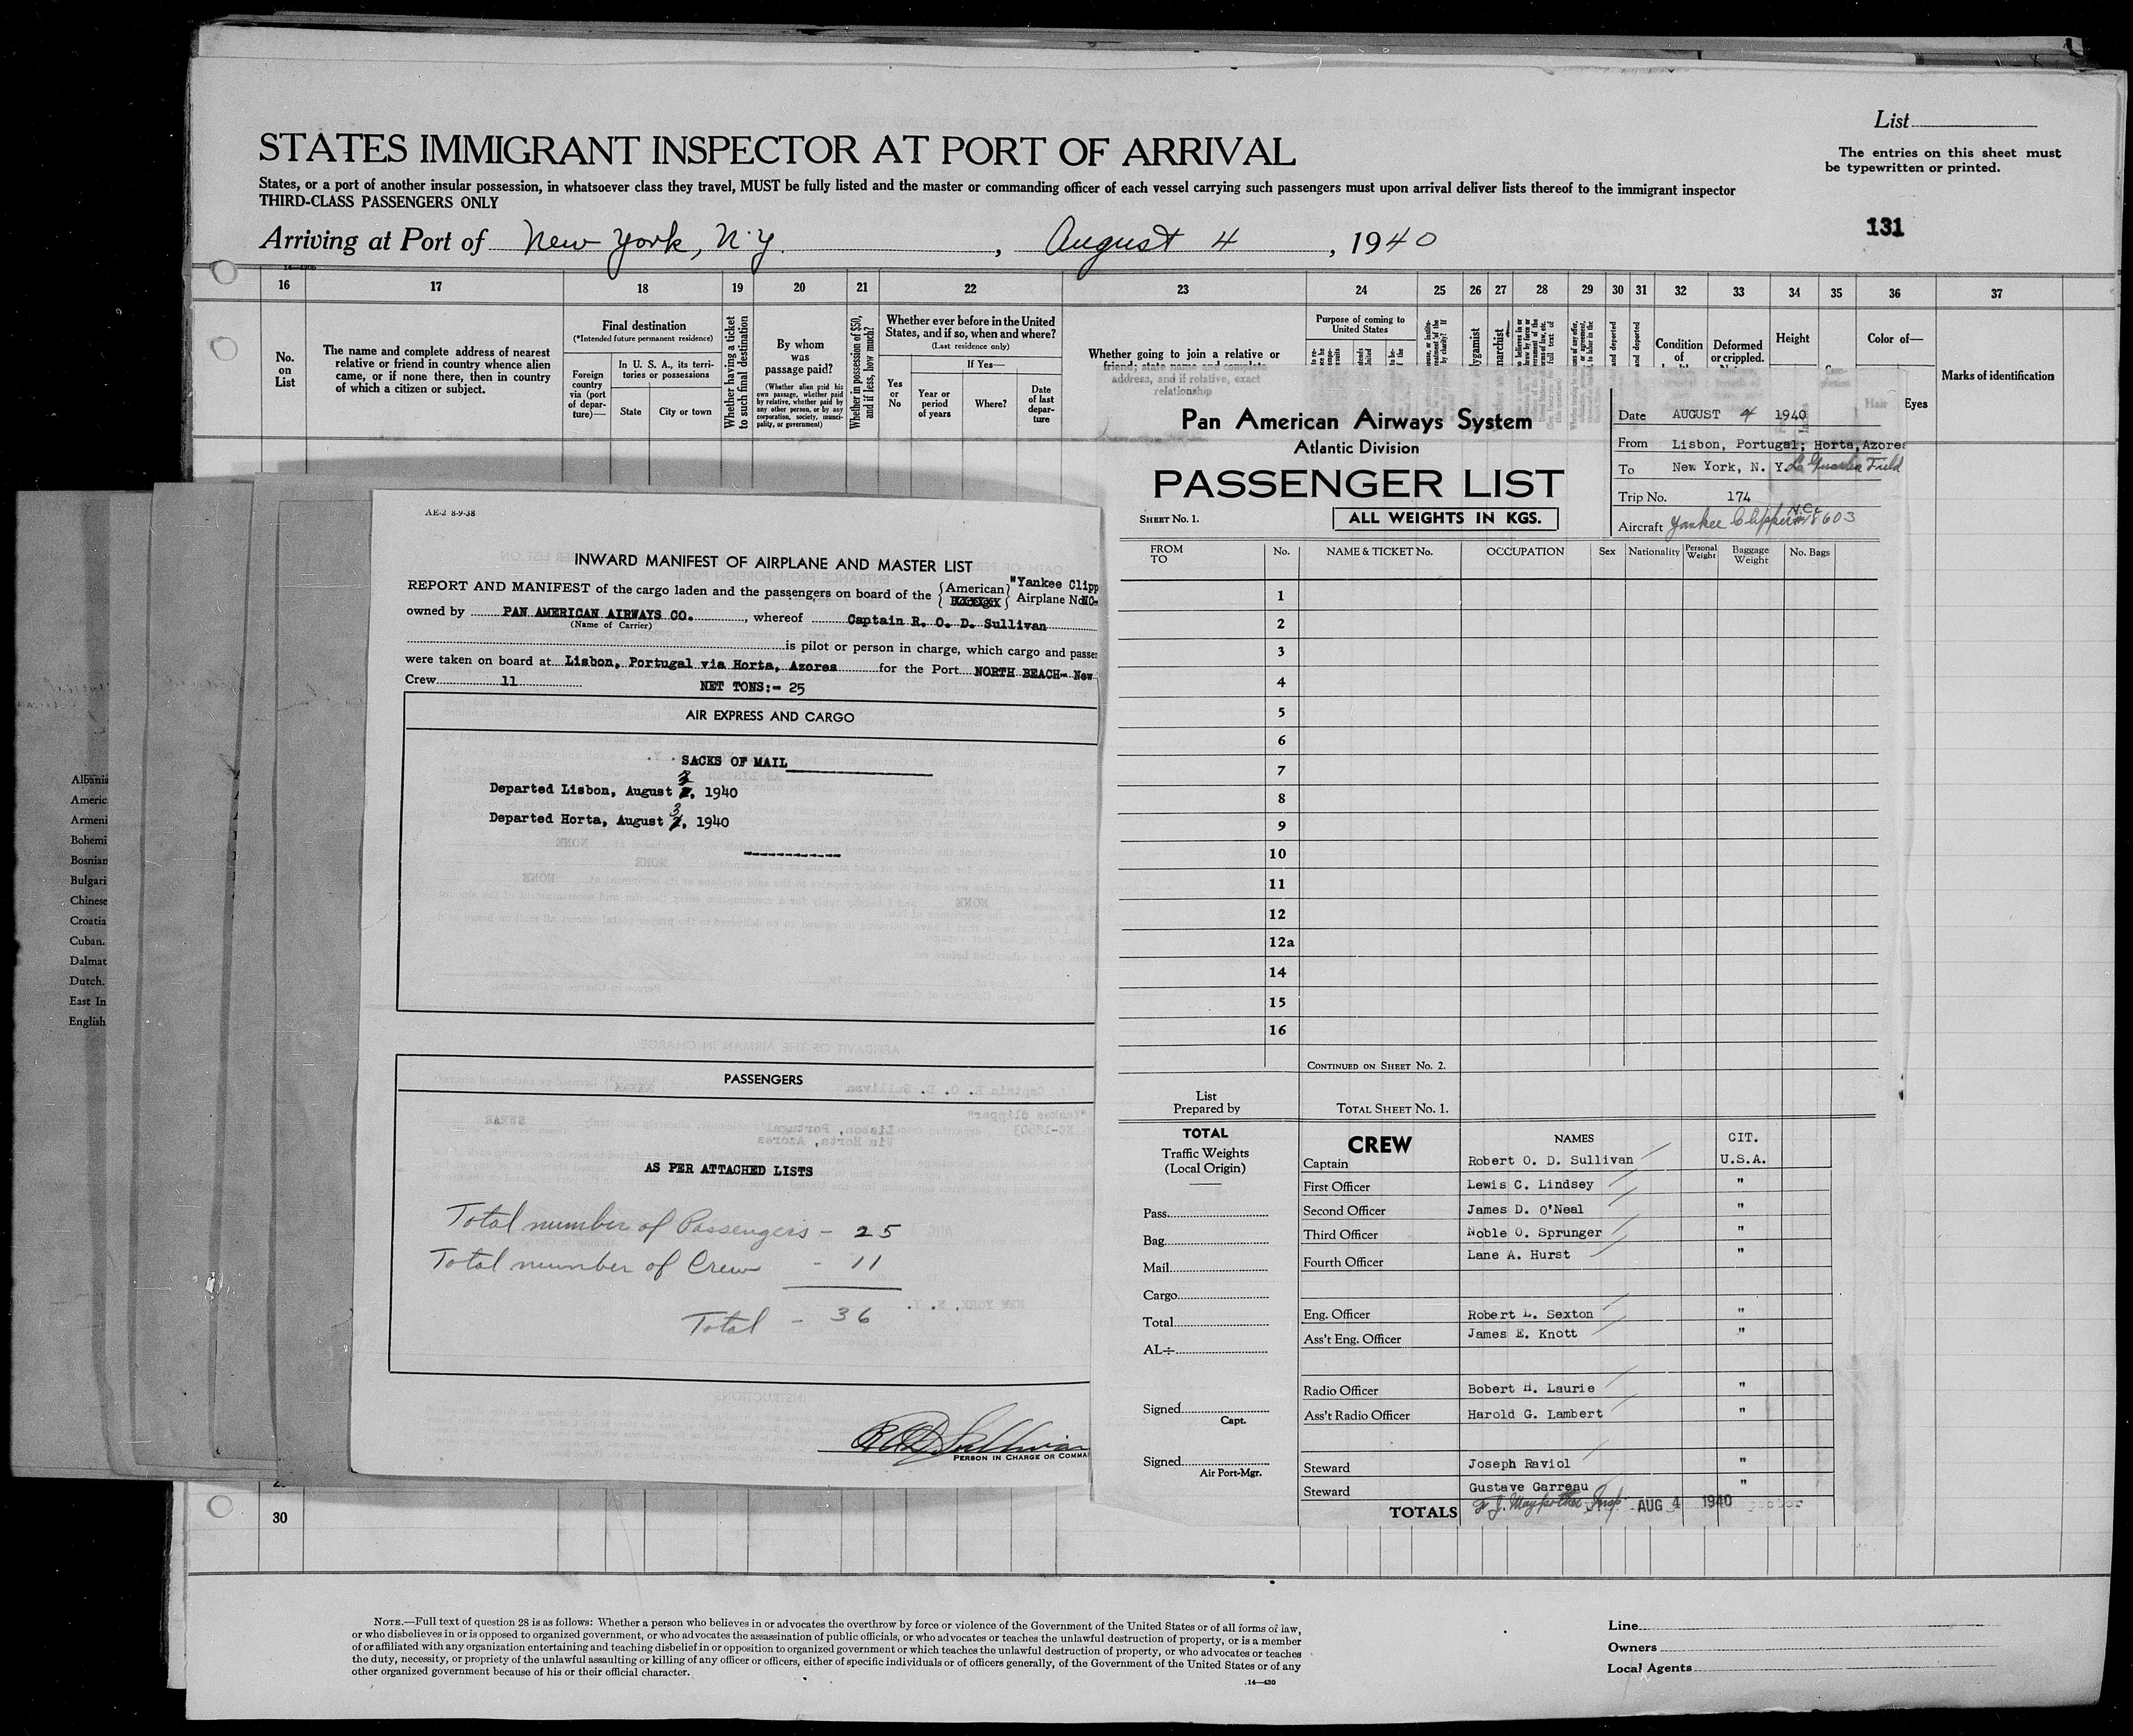 List
The entries on this sheet must
be typewritten or printed.
STATES IMMIGRANT INSPECTOR AT PORT OF ARRIVAL
States, or a port of another insular possession, in whatsoever class they travel, MUST be fully listed and the master or commanding officer of each vessel carrying such passengers must upon arrival deliver lists thereof to the immigrant inspector
THIRD-CLASS PASSENGERS ONLY
131
Arriving at Port of New York, N.Y. , August 4 , 1940
16 17 18 19 20 21 22 23 24 25 26 27 28 29 30 31 32 33 34 35 36 37
No.
on
List
The name and complete address of nearest
relative or friend in country whence alien
came, or if none there, then in country
of which a citizen or subject.
Final destination
(*Intended future permanent residence)
Foreign
country
via (port
of depar-
ture)—
In U. S. A., its terri-
tories or possessions
State
City or town
Whether having a ticket
to such final destination
By whom
was
passage paid?
(Whether alien paid his
own passage, whether paid
by relative, whether paid by
any other person, or by any
corporation, society, munici-
pality, or government)
Whether in possession of $50,
and if less, how much?
Whether ever before in the United
States, and if so, when and where?
(Last residence only)
Yes
or
No
If Yes—
Year or
period
of years
Where?
Date
of last
depar-
ture
Whether going to join a relative or
friend; state name and complete
address, and if relative, exact
relationship
Purpose of coming to
United States
Condition
of
Deformed
or crippled.
Height
Color of—
Hair
Eyes
Marks of identification
Albania
Americ
Armeni
Bohemi
Bosnian
Bulgari
Chinese
Croatia
Cuban.
Dalmat
Dutch.
East In
English
AE-2 8-9-38
INWARD MANIFEST OF AIRPLANE AND MASTER LIST
REPORT AND MANIFEST of the cargo laden and the passengers on board of the American "Yankee Clipp
Airplane No. NC-
owned by PAN AMERICAN AIRWAYS CO. , whereof Captain R. O. D. Sullivan
(Name of Carrier)
is pilot or person in charge, which cargo and passen
were taken on board at Lisbon, Portugal via Horta, Azores for the Port NORTH BEACH- New
Crew 11
NET TONS:- 25
AIR EXPRESS AND CARGO
SACKS OF MAIL
Departed Lisbon, August 3, 1940
Departed Horta, August 3, 1940
PASSENGERS
AS PER ATTACHED LISTS
Total number of Passengers - 25
Total number of Crew - 11
Total - 36
R O D Sullivan
PERSON IN CHARGE OR COMMA
Pan American Airways System
Atlantic Division
PASSENGER LIST
SHEET No. 1.
ALL WEIGHTS IN KGS.
Date AUGUST 4 1940
From Lisbon, Portugal; Horta, Azores
To New York, N. Y. La Guardia Field
Trip No. 174
Aircraft Yankee Clipper N.C. 18603
FROM
TO
No.
NAME & TICKET No.
OCCUPATION
Sex
Nationality
Personal
Weight
Baggage
Weight
No. Bags
1
2
3
4
5
6
7
8
9
10
11
12
12a
14
15
16
CONTINUED ON SHEET No. 2.
List
Prepared by
TOTAL SHEET No. 1.
TOTAL
Traffic Weights
(Local Origin)
Pass.
Bag
Mail
Cargo
Total
AL÷
Signed
Capt.
Signed
Air Port-Mgr.
CREW NAMES CIT.
Captain Robert O. D. Sullivan U.S.A.
First Officer Lewis C. Lindsey "
Second Officer James D. O'Neal "
Third Officer Noble O. Sprunger "
Fourth Officer Lane A. Hurst "
Eng. Officer Robert L. Sexton "
Ass't Eng. Officer James E. Knott "
Radio Officer Bobert H. Laurie "
Ass't Radio Officer Harold G. Lambert "
Steward Joseph Raviol "
Steward Gustave Garreau "
TOTALS
AUG 4 1940
30
NOTE.—Full text of question 28 is as follows: Whether a person who believes in or advocates the overthrow by force or violence of the Government of the United States or of all forms of law,
or who disbelieves in or is opposed to organized government, or who advocates the assassination of public officials, or who advocates or teaches the unlawful destruction of property, or is a member
of or affiliated with any organization entertaining and teaching disbelief in or opposition to organized government or which teaches the unlawful destruction of property, or who advocates or teaches
the duty, necessity, or propriety of the unlawful assaulting or killing of any officer or officers, either of specific individuals or of officers generally, of the Government of the United States or of any
other organized government because of his or their official character.
14—430
Line
Owners
Local Agents